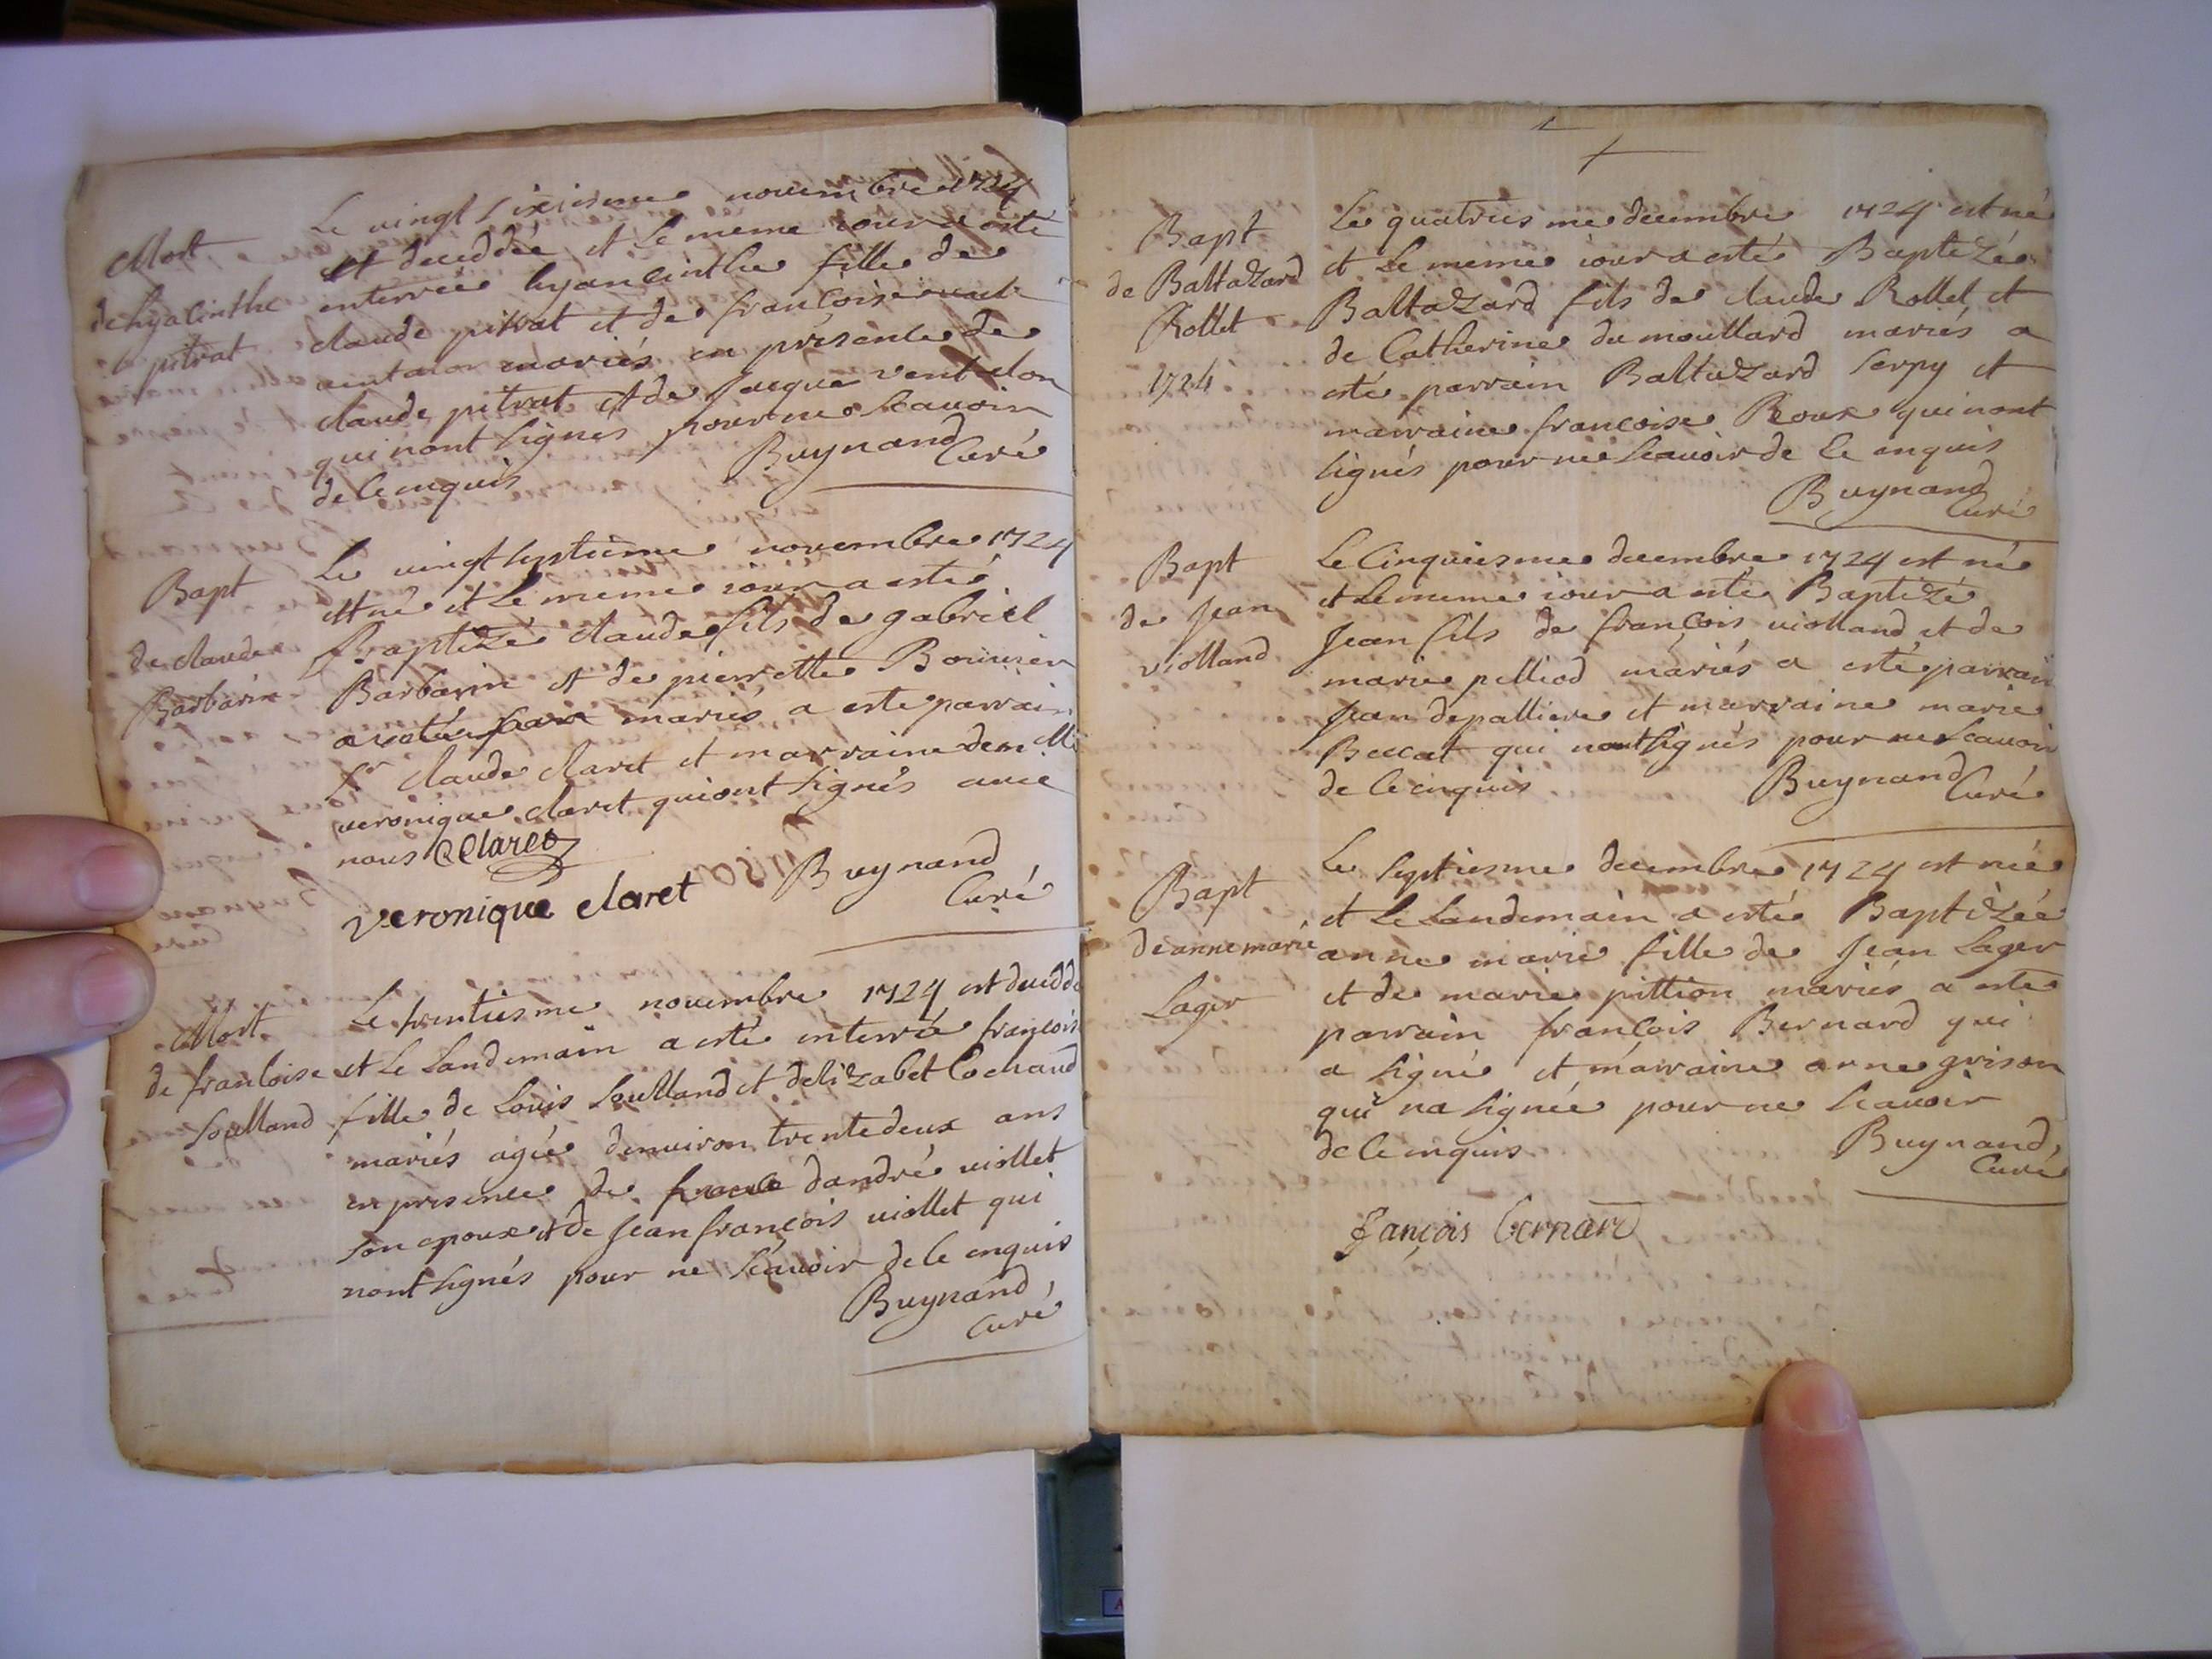 Mort
de hyacinthe
pitrat
Le vingt sixiesme novembre 1724
est deceddée et le meme iour a esté
enterrée hyancinthe fille de
claude pitrat et de francoise
mariés en presence de
claude pitrat et de Jacque ventalon
qui nont signés pour ne scauoir
de ce enquis Buynand
Curé
Bapt
de claude
Barbarin
Le vingt septieme novembre 1724
est né et le meme iour a esté
Baptizé claude fils de gabriel
Barbarin et de pierrette Bouuier
mariés a este parrain
Sr claude claret et marraine dem
veronique claret qui ont signés auec
nous CClaret
veronique claret Buynand
Curé
Mort
de francoise
soulland
Le trentiesme nouembre 1724 est decedde
et Le Landemain a esté enterrée francois
fille de Louis soulland et delizabet Cochand
mariés agée denuiron trente deux ans
en presence de dandré viollet
son epoux et de Jean françois viollet qui
nont signés pour ne scauoir de ce enquis
Buynand
curé
Bapt
de Baltazard
Rollet
1724
Le quatriesme decembre 1724 est né
et Le meme iour a esté Baptizé
Baltazard fils de claude Rollet et
de Catherine du moullard mariés a
esté parrain Baltazard serpy et
marraine francoise Roux qui nont
signés pour ne scauoir de ce enquis
Buynand
Curé
Bapt
de Jean
violland
Le Cinquiesme decembre 1724 est né
et Le meme iour a esté Baptizé
Jean fils de françois violland et de
marie pelliod mariés a esté parrain
Jean depalliere et marraine marie
Boccat qui nont signés pour ne scauoir
de ce enquis Buynand
Curé
Bapt
de anne marie
Lager
Le septiesme decembre 1724 est née
et Le Landemain a esté Baptizée
anne marie fille de Jean Lager
et de marie pittion mariés a esté
parrain francois Bernard qui
a signé et marraine anne grison
qui na signée pour ne scauoir
de ce enquis Buynand
Curé
françois bernard